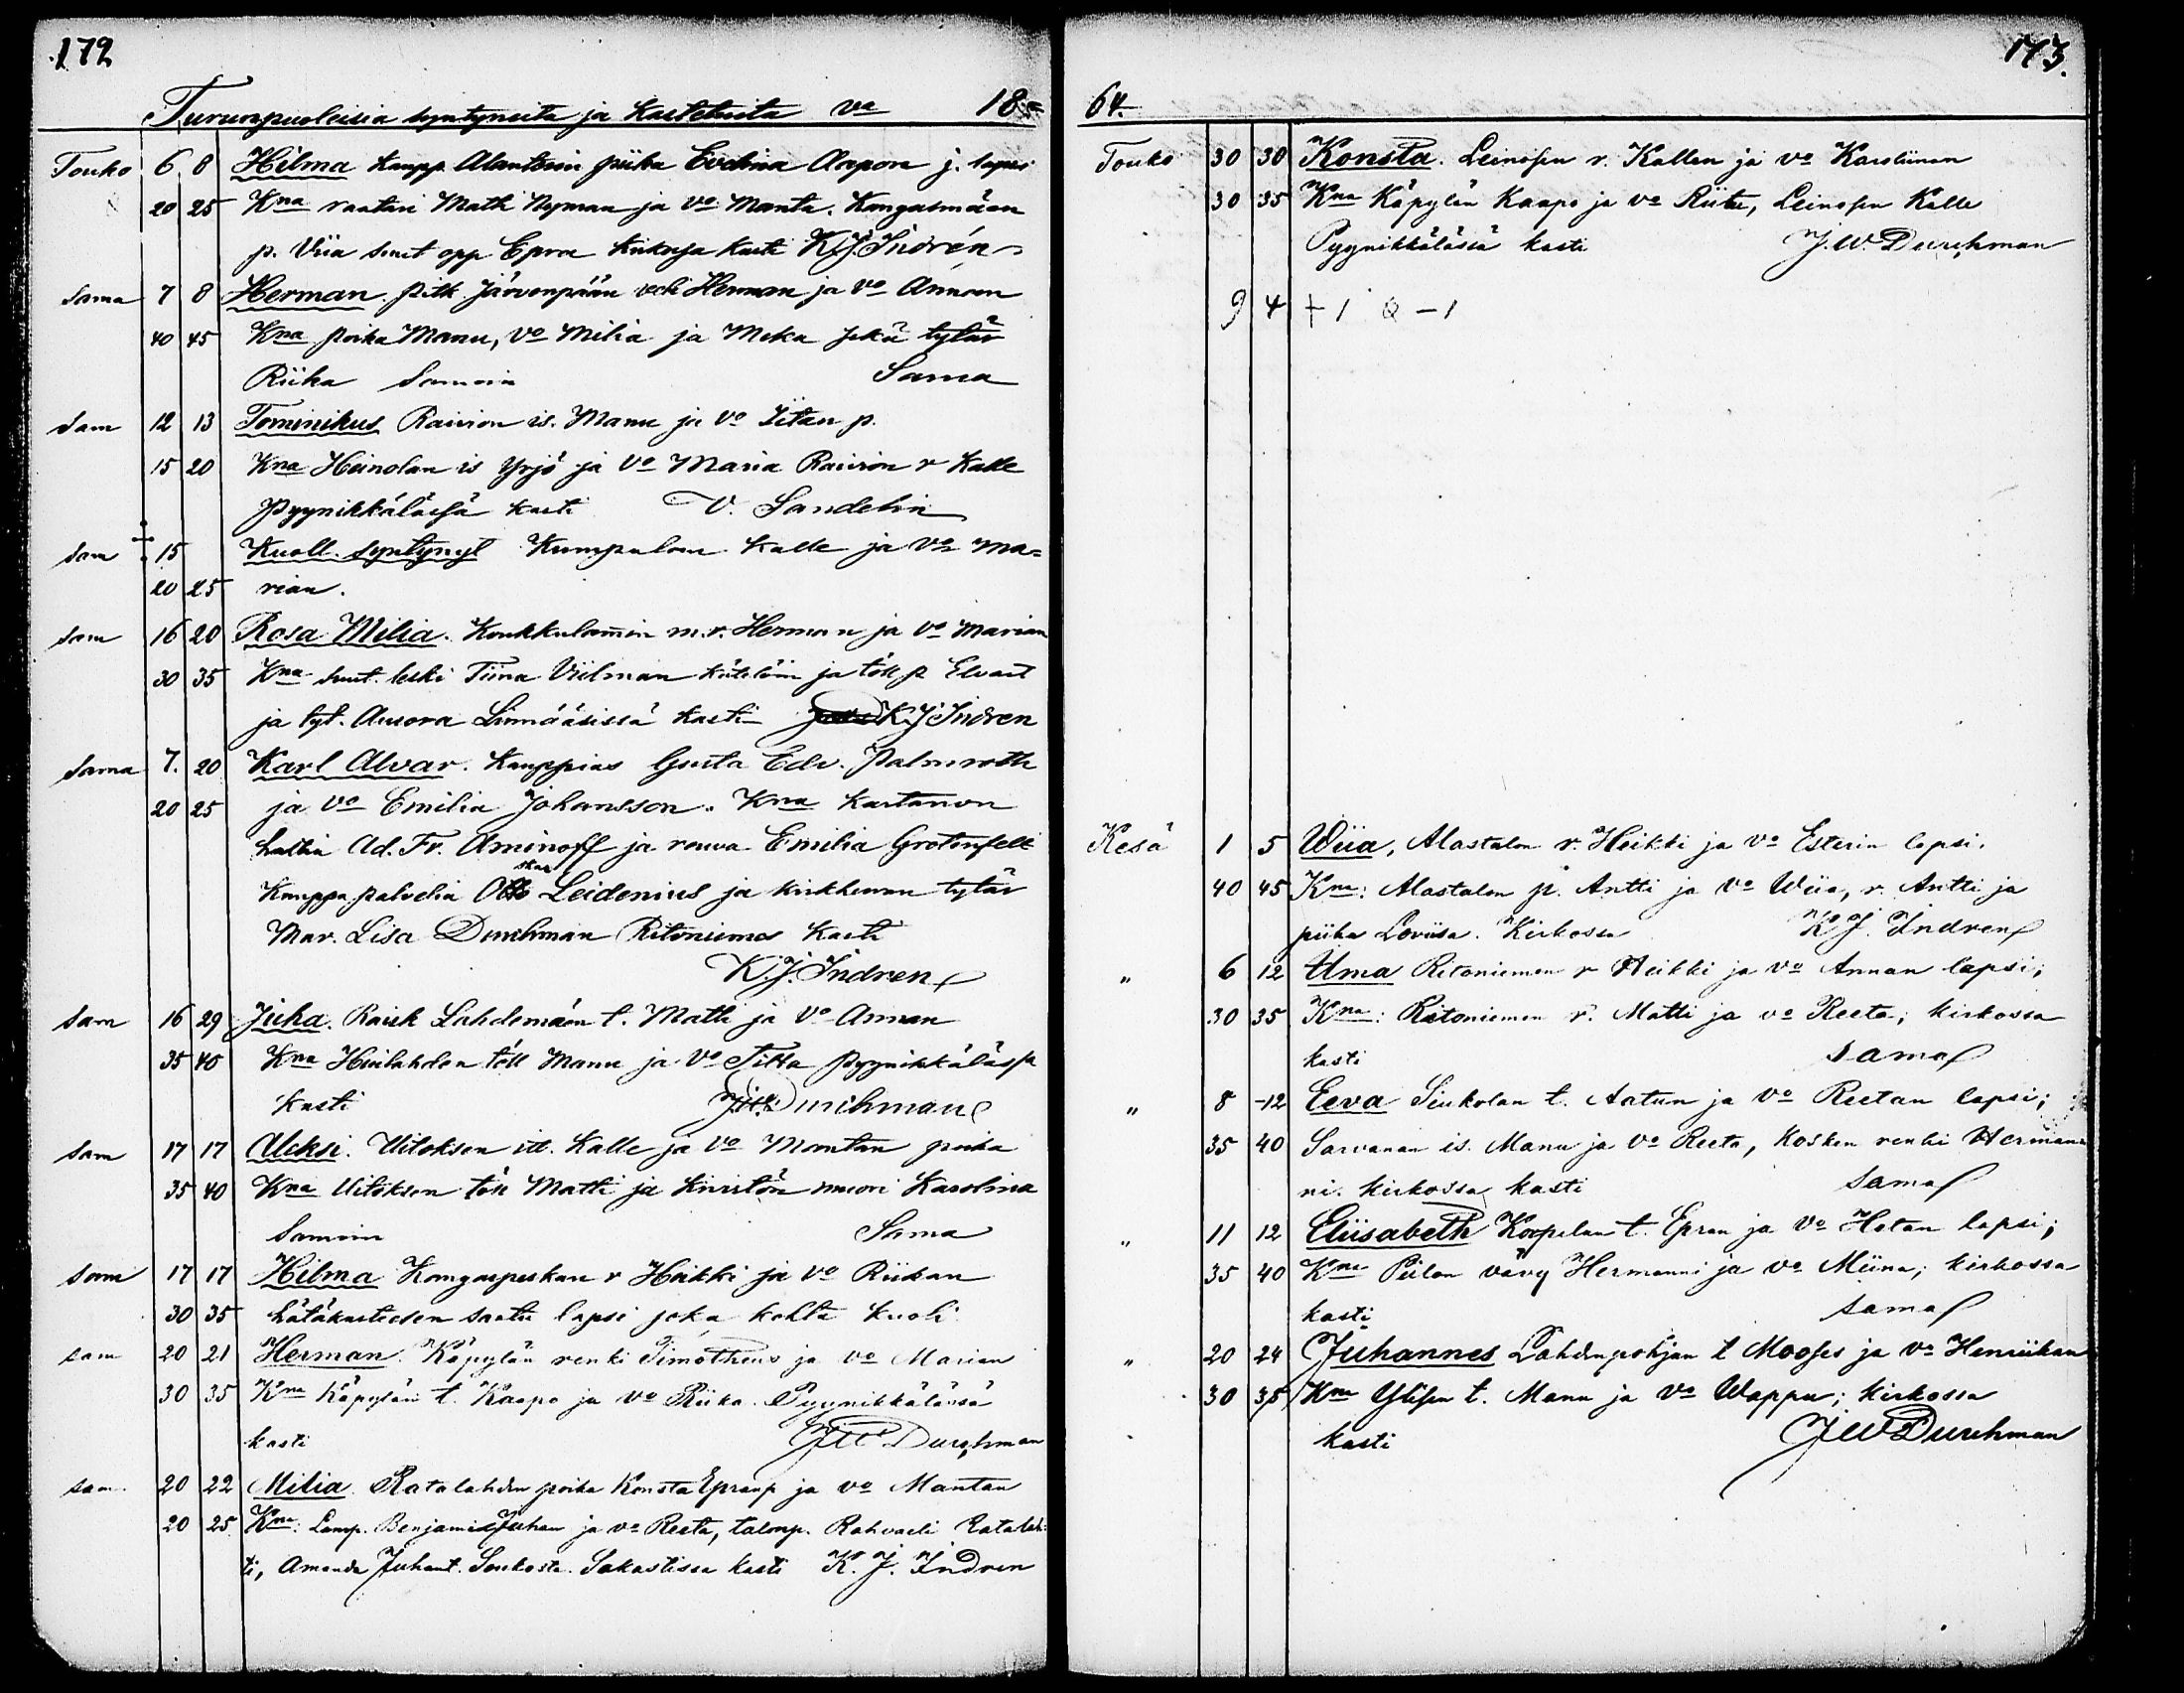 172
Turunpuoleisia syntyneita ja kastetuita va 18=
Touko 6 8 Hilma kaupp. piika Evelina Aapon j. lapsi
20 25 Kna raatari Matti Nyman ja vo Manta. Kangasmäen
p. Viia suut opp Epra kasti K.J. Indrén
Sama 7 8 Herman. pitk. Järvenpään Herman ja vo Annan
40 45 Kna poika Manu, vo Milia ja Meka sekä tytär
Riika Samoin Sama
Sam 12 13 Tominikus Raivion is. Manu ja vo Iitan p.
15 20 Kna Heinolan is Yrjö ja vo Maria Raivion r Kalle
Pyynikkälässä kasti V. Sandelin
Sam 15 Kuoll. syntynyt Kumpulan Kalle ja vo Ma=
20 25 rian.
Sam 16 20 Rosa Milia. Koukkulamin m.r. Herman ja vo Marian
30 35 Kna suut. leski Tiina Viilman ja töll p Edvart
ja tyt. Aurora Linnääsissä kasti K J Indren
Sama 7. 20 Karl Alvar. Kauppias Gusta Edv. Palmroth
20 25 ja vo Emilia Johansson. Kna kartanon
haltia Ad. Fr. Aminoff ja rouva Emilia Grotenfelt
Kauppa palvelia Oskar Leidenius ja kirkherran tytär
Mar. Lisa Durchman Ritoniemes kasti
K.J. Indren
Sam 16 29 Juha. Lahdemäen t. Matti ja vo Annan
35 40 Kna Heinlahden töll Manu ja vo Titta Pyynikkäläss
kasti J.W. Durchman
Sam 17 17 Aleksi. Uitoksen itl. Kalle ja vo Mantan poika
35 40 Kna Uitoksen töll Matti ja muori Karolina
Samoin Sama
Sam 17 17 Hilma Kangaspeskan r Heikki ja vo Riikan
30 35 hätäkasteesen saatu lapsi joka kohta kuoli
sam 20 21 Herman. Käpylän renki Timotheus ja vo Marian
30 35 Kna Käpylän t. Kaapo ja vo Riika. Pyynikkälässä
kasti JW Durchman
sam. 20 22 Milia. Ratalahden poika Konsta Epranp ja vo Mantan
20 25 Kna: Lamp. Benjami Juhan ja vo Reeta, talonp. Rahvaeli Ratalah=
ti, Amanda Juhant. Soukosta. Sakastissa kasti K. J. Indren
173.
64.
Touko 30 30 Konsta. Leinosen r. Kallen ja vo Karoliinan
30 35 Kna Käpylän Kaapo ja vo Riita, Leinosen Kalle
Pyynikkälässä kasti J.W. Durchman
9 4 + 1 — 1
Kesä 1 5 Wiia, Alastalon r. Heikki ja vo Esterin lapsi.
40 45 Kna: Alastalon p. Antti ja vo Wiia, r. Antti ja
piika Loviisa. Kirkossa K J. Indren
„ 6 12 Ritoniemen r Heikki ja vo Annan lapsi;
30 35 Kna: Ritoniemen r. Matti ja vo Reeta; kirkossa
kasti sama
„ 8 -12 Eeva Siukolan t. Aatun ja vo Reetan lapsi;
35 40 Sarvanan is. Manu ja vo Reeta, Kosken renki Herman
ni. kirkossa kasti sama
„ 11 12 Eliisabeth Koapelan t. Epran ja vo Hetan lapsi;
35 40 Kna Piilon vävy Hermanni ja vo Miina; kirkossa
kasti sama
„ 20 24 Juhannes Lahdenpohjan t Mooses ja vo Henriikan
30 35 Kna Ylisen t. Manu ja vo Wappu; kirkossa
kasti JW Durchman